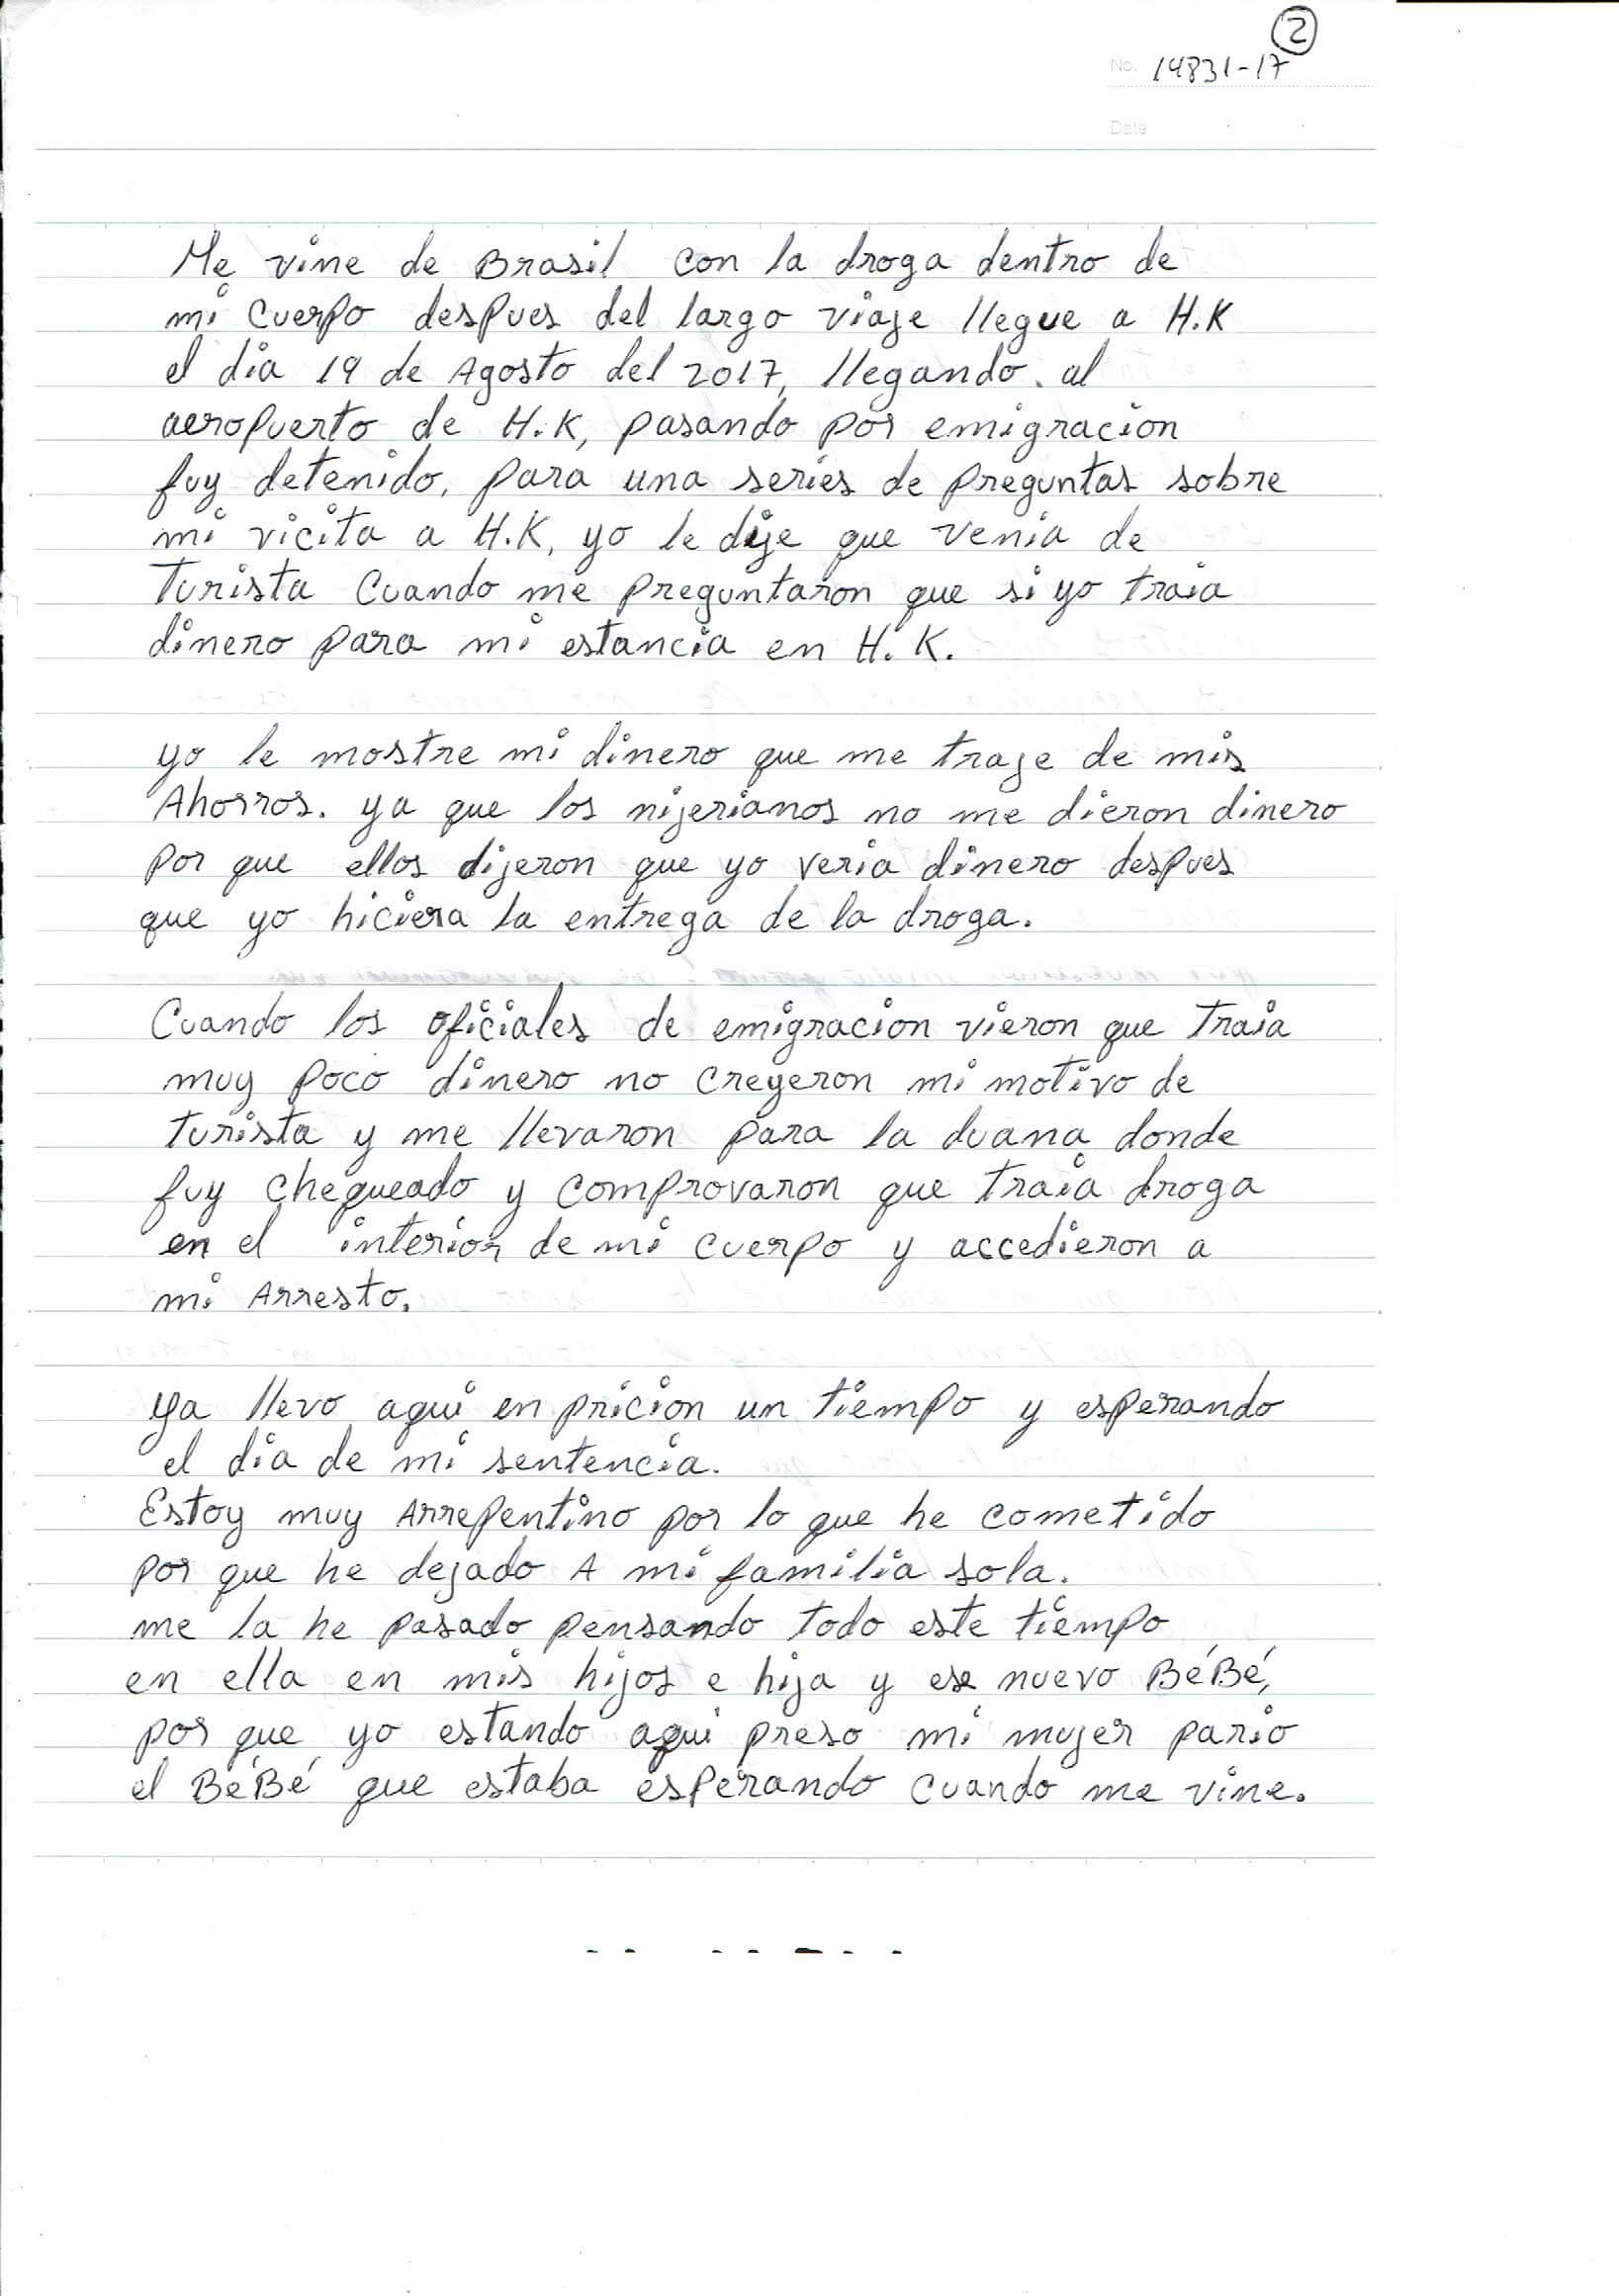 2
No. 14831-17
Date
Me vine de Brasil con la droga dentro de
mi cuerpo despues del largo viaje llegue a H.K
el dia 19 de Agosto del 2017, llegando. al
aeropuerto de H.K, pasando por emigracion
fuy detenido, para una series de preguntas sobre
mi vicita a H.K, yo le dije que venia de
Turista Cuando me preguntaron que si yo traia
dinero para mi estancia en H.K.
yo le mostre mi dinero que me traje de mis
Ahorros. ya que los nijerianos no me dieron dinero
por que ellos dijeron que yo veria dinero despues
que yo hiciera la entrega de la droga.
Cuando los oficiales de emigracion vieron que Traia
muy poco dinero no creyeron mi motivo de
turista y me llevaron para la duana donde
fuy chequeado y comprovaron que traia droga
en el interior de mi cuerpo y accedieron a
mi Arresto.
ya llevo aqui en pricion un tiempo y esperando
el dia de mi sentencia.
Estoy muy Arrepentino por lo que he cometido
por que he dejado A mi familia sola.
me la he pasado pensando todo este tiempo
en ella en mis hijos e hija y ese nuevo BéBé,
por que yo estando aqui preso mi mujer pario
el BéBé que estaba esperando cuando me vine.